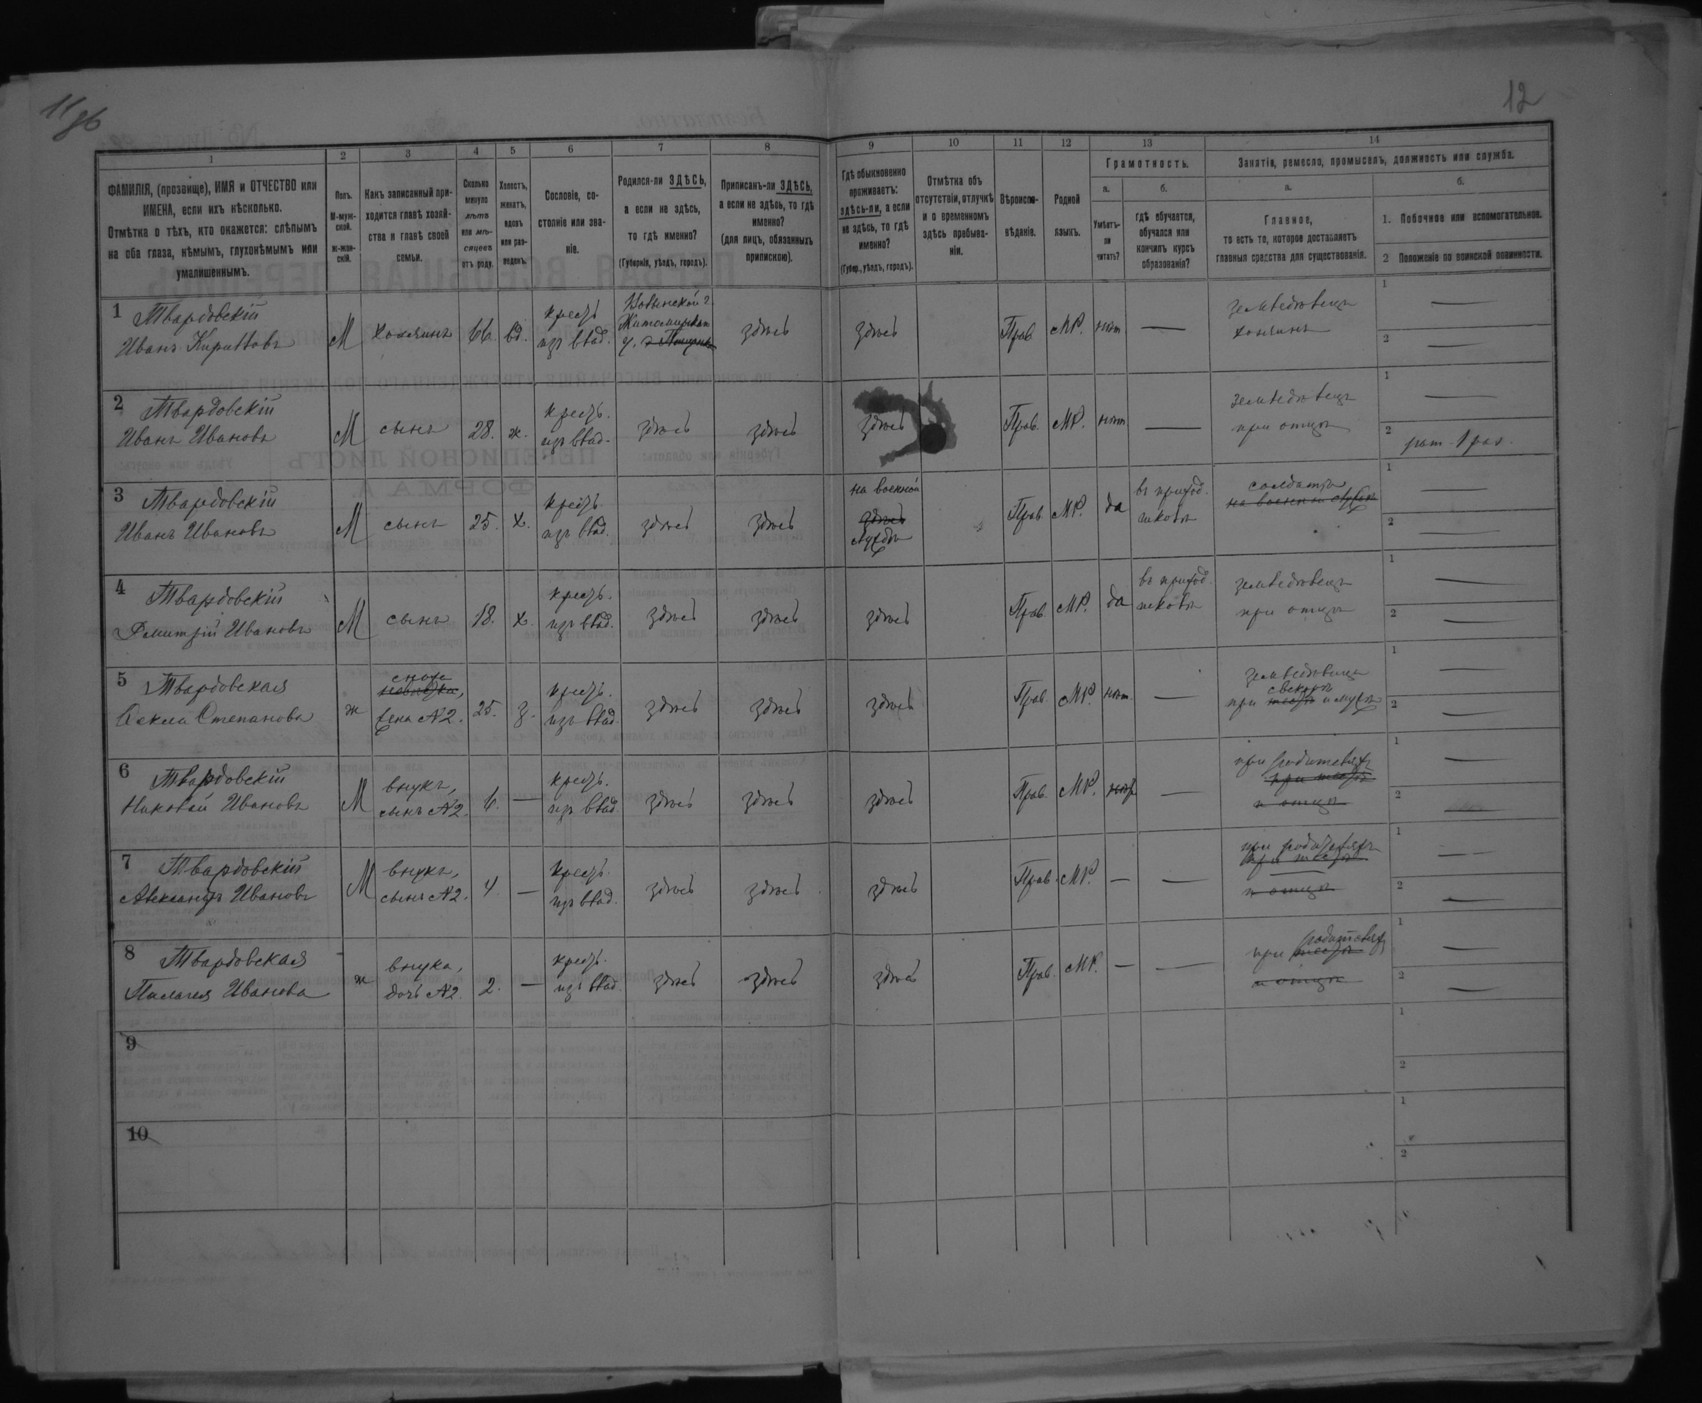 11об
12
1
2
3
4
5
6
7
8
9
10
11
12
13
14
ФАМИЛІЯ, (прозвище), ИМЯ и ОТЧЕСТВО или
ИМЕНА, если ихъ нѣсколько.
Отмѣтка о тѣхъ, кто окажется: слѣпымъ
на оба глаза, нѣмымъ, глухонѣмымъ или
умалишеннымъ.
Полъ.
М-муж-
ской.
ж-жен-
скій.
Какъ записанный при-
ходится главѣ хозяй-
ства и главѣ своей
семьи.
Сколько
минуло
лѣтъ
или мѣ-
сяцевъ
отъ роду.
Холостъ,
женатъ,
вдовъ
или раз-
веденъ.
Сословіе, со-
стояніе или зва-
ніе.
Родился-ли ЗДѢСЬ,
а если не здѣсь,
то гдѣ именно?
(Губернія, уѣздъ, городъ).
Приписанъ-ли ЗДѢСЬ,
а если не здѣсь, то гдѣ
именно?
(для лицъ, обязанныхъ
припискою).
Гдѣ обыкновенно
проживаетъ:
здѣсь-ли, а если
не здѣсь, то гдѣ
именно?
(Губер., уѣздъ, городъ).
Отмѣтка объ
отсутствіи, отлучкѣ
и о временномъ
здѣсь пребыва-
ніи.
Вѣроиспо-
вѣданіе.
Родной
языкъ.
Грамотность.
а.
Умѣетъ-
ли
читать?
б.
гдѣ обучается,
обучался или
кончилъ курсъ
образованія?
Занятіе, ремесло, промыселъ, должность или служба.
а.
Главное,
то есть то, которое доставляетъ
главныя средства для существованія.
б.
1. Побочное или вспомогательное.
2 Положеніе по воинской повинности.
1 Твардовскій
Иванъ Кириловъ
М
хозяинъ
66.
вд.
крест.
изъ влад.
Волынской г.
Житомирскаго
у.
здѣсь
здѣсь
Прав.
МР.
нѣт
—
земледѣлецъ
хозяинъ
1 —
2 —
2 Твардовскій
Иванъ Ивановъ
М
сынъ
28.
ж.
крест.
изъ влад.
здѣсь
здѣсь
здѣсь
Прав.
МР.
нѣт
—
земледѣлецъ
при отцѣ
1 —
2 рат. 1 раз.
3 Твардовскій
Иванъ Ивановъ
М
сынъ
25.
х.
крест.
изъ влад.
здѣсь
здѣсь
на военной
здѣсь
службѣ
Прав.
МР.
да
въ приход.
школѣ
солдатъ
на военной службѣ
1 —
2 —
4 Твардовскій
Дмитрій Ивановъ
М
сынъ
18.
х.
крест.
изъ влад.
здѣсь
здѣсь
здѣсь
Прав.
МР.
да
въ приход.
школѣ
земледѣлецъ
при отцѣ
1 —
2 —
5 Твардовская
Степанова
ж
невѣстка,
жена №2.
25.
з.
крест.
изъ влад.
здѣсь
здѣсь
здѣсь
Прав.
МР.
нѣт
—
земледѣлица
свекрѣ
при тестѣ и мужѣ
1 —
2 —
6 Твардовскій
Николай Ивановъ
М
внукъ,
сынъ №2.
6.
—
крест.
изъ влад.
здѣсь
здѣсь
здѣсь
Прав.
МР.
нѣт
—
при родителяхъ
и отцѣ
1 —
2
7 Твардовскій
Александръ Ивановъ
М
внукъ,
сынъ №2.
4.
—
крест.
изъ влад.
здѣсь
здѣсь
здѣсь
Прав.
МР.
—
—
при родителяхъ
и отцѣ
1 —
2 —
8 Твардовская
Пилагея Иванова
ж
внука,
дочь №2.
2.
—
крест.
изъ влад.
здѣсь
здѣсь
здѣсь
Прав.
МР.
—
—
родителяхъ
при
и отцѣ
1 —
2 —
9
1
2
10
1
2